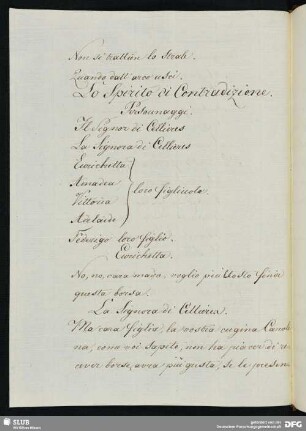 Non si trattien lo strale.
Quando dall'arco uscì.
Lo Spirito di Contradizione.
Personnaggi.
Il Signor di Cellières
La Signora di Cellières
Enrichetta
Amadea
Vittoria
Adelaide
loro figliuole
Federigo loro figlio.
Enrichetta.
No, no, cara madre, voglio più tosto finir
questa borsa.
La Signora di Cellières.
Ma cara figlia, la vostra cugina Caroli
na, come voi sapete, non ha più di
nove borse, avrà più gusto, se le presen
SLUB
DFG